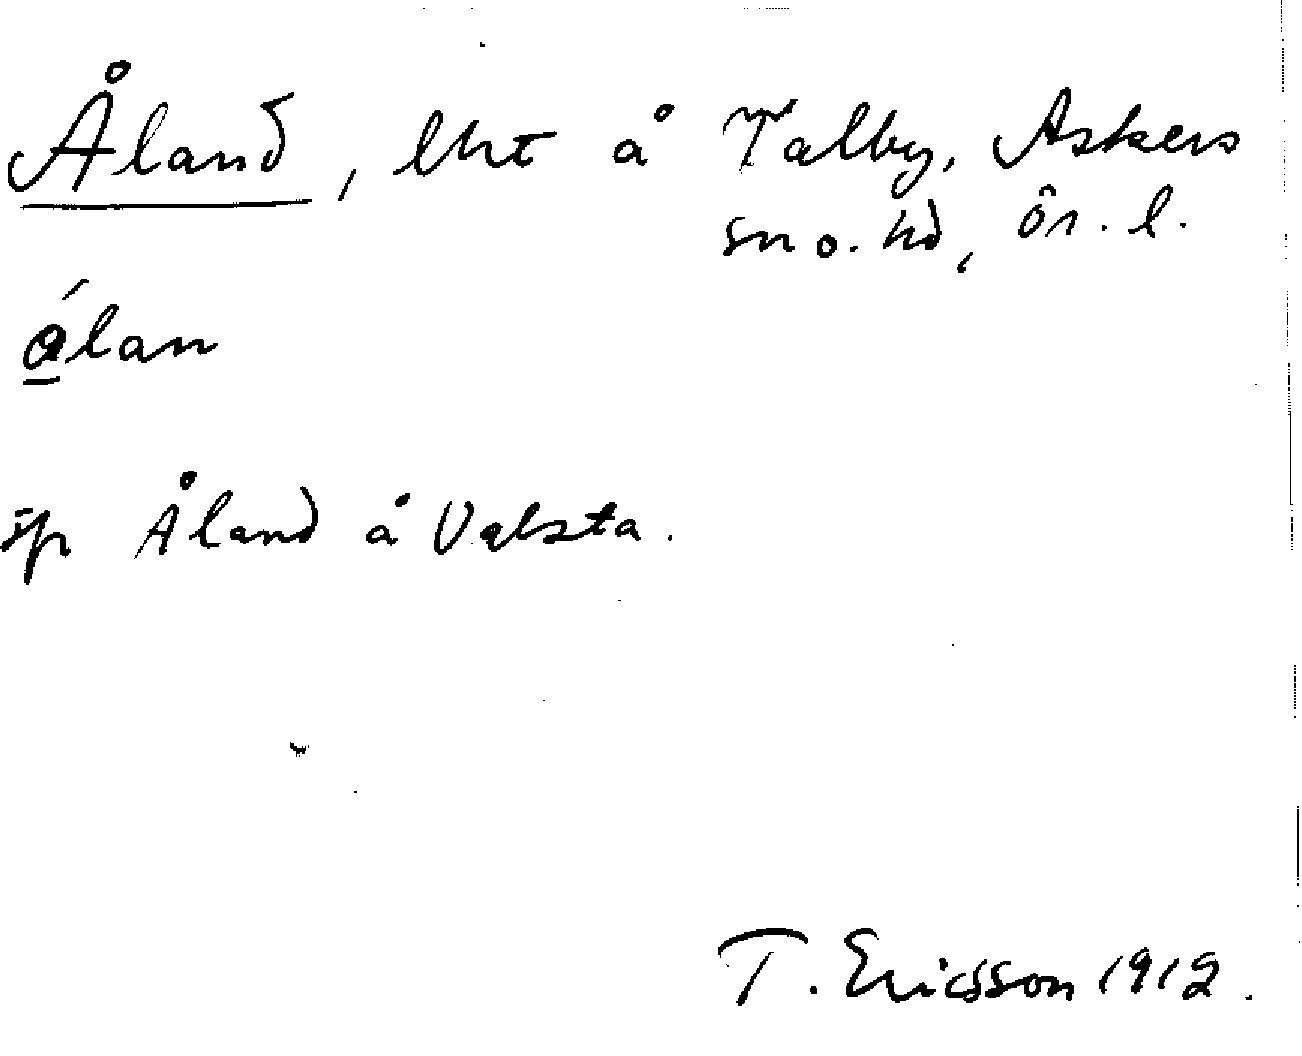 Åland, lht å Talby, Askers
sn o. hd, Ör. l.
ålan
sp Åland å Valsta.
T. Ericsson 1912.